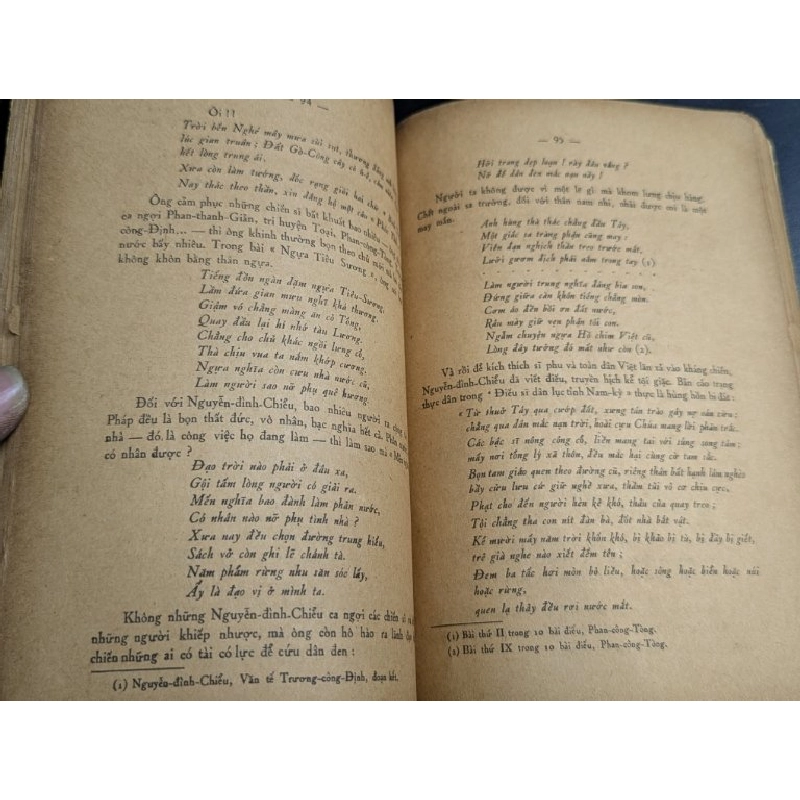 94 —
Ôi !!
Trời bến Nghé mây mưa sùi sụt, thương đấng anh
lúc gian truân ; Đất Gò-Công cây cỏ
kết lòng trung ái.
Xưa còn làm tướng, dốc rạng giời hai chữ
Nay thác theo thần, xin dâng hộ một câu
Ông cảm phục những chiến sĩ bất khuất bao nhiêu
ca ngợi Phan-thanh-Giản, tri huyện Toại, Phan-công-Tòng
công-Định... — thì ông khinh thường bọn theo chủ mới
nước bấy nhiêu. Trong bài « Ngựa Tiêu Sương »,
không khôn bằng thân ngựa.
Tiếng đồn ngàn dặm ngựa Tiêu-Sương,
Lầm đứa gian mưu nghĩ khá thương.
Giậm vó chẳng màng ăn cỏ Tống,
Quay đầu lại hí nhớ tàu Lương.
Chẳng cho chủ khác ngồi lưng cỡi,
Thà chịu vua ta nắm khớp cương.
Ngựa nghĩa còn cưu nhà nước cũ,
Làm người sao nỡ phụ quê hương.
Đối với Nguyễn-đình-Chiểu, bao nhiêu người ra cộng
Pháp đều là bọn thất đức, vô nhân, bạc nghĩa hết cả. Phản
nhà — đó là công việc họ đang làm — thì làm sao mà
có nhân được ?
Đạo trời nào phải ở đâu xa,
Gội tấm lòng người có giải ra.
Mến nghĩa bao đành làm phản nước,
Có nhân nào nỡ phụ tình nhà ?
Xưa nay đều chọn đường trung hiếu,
Sách vở còn ghi lẽ chánh tà.
Năm phẩm rừng nhu săn sóc lấy,
Ấy là đạo vị ở mình ta.
Không những Nguyễn-đình-Chiểu ca ngợi các chiến sĩ
những người khiếp nhược, mà ông còn hô hào ra lãnh đạo
chiến những ai có tài có lực để cứu dân đen :
(1) Nguyễn-đình-Chiểu, Văn tế Trương-công-Định, đoạn kết.
— 95 —
Hỡi trang dẹp loạn ! này đâu vắng ?
Nỡ để dân đen mắc nạn này !
Người ta không được vì một lẽ gì mà khom lưng chịu hàng.
Chết ngoài sa trường, đối với thân nam nhi, phải được coi là một
may mắn.
Anh hùng thà thác chẳng đầu Tây,
Một giấc sa trường phận cũng may ;
Viên đạn nghịch thần treo trước mắt,
Lưỡi gươm địch khái nắm trong tay (1)
. . . . . . . . . .
Làm người trung nghĩa đáng bia son,
Đứng giữa càn khôn tiếng chẳng mòn.
Cơm áo đền bồi ơn đất nước,
Râu mày giữ vẹn phận tôi con.
Ngẫm chuyện ngựa Hồ chim Việt cũ,
Lòng đây tưởng đó mất như còn (2).
Và rồi để kích thích sĩ phu và toàn dân Việt lăn xả vào kháng chiến,
Nguyễn-đình-Chiểu đã viết điếu, truyền hịch kể tội giặc. Bản cáo trạng
thực dân trong « Điếu sĩ dân lục tỉnh Nam-kỳ » thực là hùng hồn bi đát :
« Từ thuở Tây qua cướp đất, xưng tân trào gây nợ oán cừu :
chẳng qua dân mắc nạn trời, hoài cựu Chúa mang lời phản trắc.
Các bậc sĩ nông công cổ, liền mang tai với súng song tâm ;
mấy nơi tổng lý xã thôn, đều mắc hại cùng cờ tam sắc.
Bọn tam giáo quen theo đường cũ, riêng thân bất hạnh làm nghèo
bầy cửu lưu cứ giữ nghề xưa, thầm tủi vô cơ chịu cực.
Phạt cho đến người hèn kẻ khó, thâu của quay treo ;
Tội chẳng tha con nít đàn bà, đốt nhà bắt vật.
Kể mười mấy năm trời khốn khó, bị khảo bị tù, bị đày bị giết,
trẻ già nghe nào xiết đếm tên ;
Đem ba tấc hơi mòn bỏ liều, hoặc sông hoặc biển hoặc núi
hoặc rừng,
quen lạ thảy đều rơi nước mắt.
(1) Bài thứ II trong 10 bài điếu, Phan-công-Tòng.
(2) Bài thứ IX trong 10 bài điếu, Phan-công-Tòng.